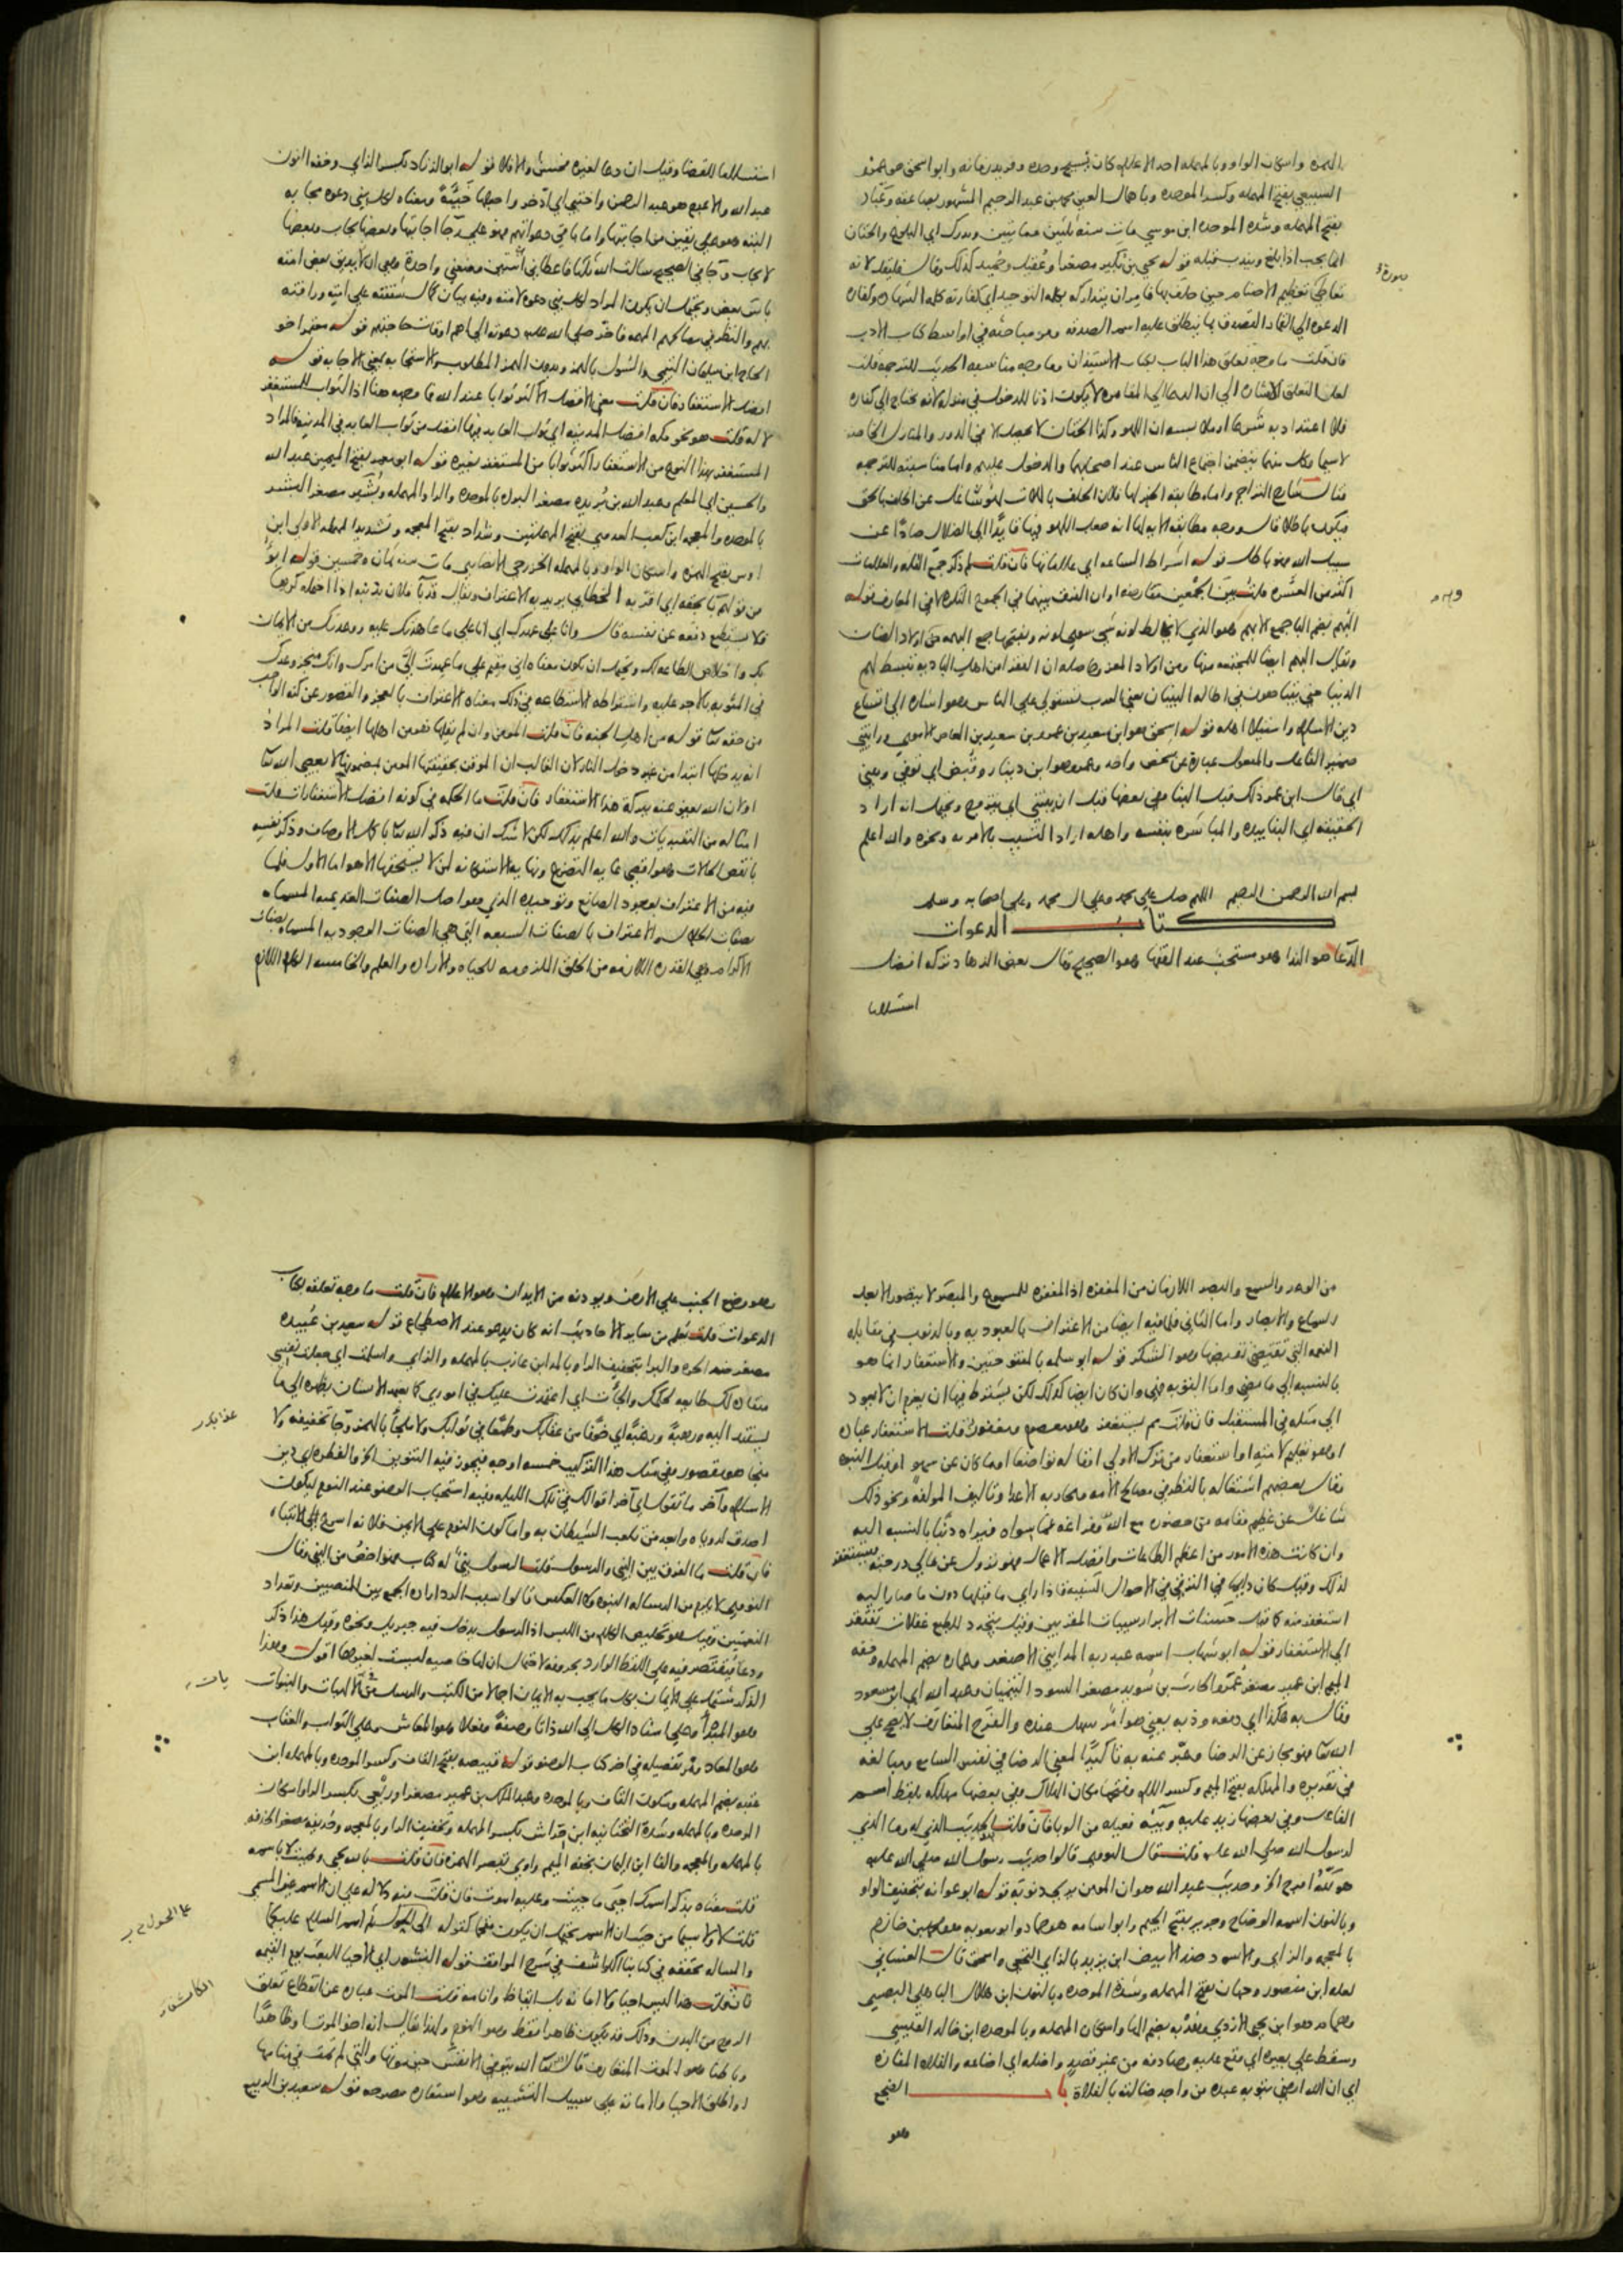 الهمزه واسكان الواو وبالمهمله احد الاعلام كان نسيج وحده وفريد زمانه وابو اسحق هو عمرو
السبيعي بفتح المهمله وكسر الموحده وباهمال العين محمد بن عبد الرحيم المشهور بصاعقه وعباد
بفتح المهمله وشده الموحده ابن موسي مات سنه ثلثين ومايتين ويدرك اي البلوغ والختان
انما يجب اذا بلغ ويندب قبله قوله يحيي بن بكير مصغرا وعقيل وحميد كذلك وقال فليقل لانه
تعاطي تعظيم الاصنام حين حلف بها فامر ان يتداركه بكلمه التوحيد اي كفارته كلمه الشهاده وكفاره
الدعوه الي القمار التصدق بما ينطلق عليه اسم الصدقه ومر مباحثه في اواسط كتاب الادب
فان قلت ما وجه تعلق هذا الباب بكتاب الاستيذان وما وجه مناسبه الحديث للترجمه قلت
لعل التعلق الاشاره الي ان الدعا الي المقامره لا يكون اذنا للدخول في منزله لانه يحتاج الي كفاره
فلا اعتداد به شرعا
لا سيما وكل منهما يتضمن اجتماع الناس عند اصحابهما والدخول عليهم واما مناسبته للترجمه
فيكون باطلا قال ووجه مطابقه الايه لها انه جعل اللهو فيها قايدا الي الضلال صادا عن
سبيل الله فهو باطل قوله اشراط الساعه اي علاماتها فان قلت لم ذكر جمع القله والعلامات
اكثر من العشره قلت بين الجمعين تقارضه او ان الفرق بينهما في الجموع النكره لا في المعارف قوله
البهم بضم البا جمع الابهم وهو الذي لا
الدنيا حتي يتباهون في اطاله البنيان يعني العرب تستولي علي الناس وهو اشاره الي اتساع
دين الاسلام واستيلا اهله قوله اسحق هو ابن سعيد بن عمرو بن سعيد بن العاص الاموي ورايتني
ضمير الفاعل والمفعول عباره عن شخص واحد وعمرو هو ابن دينار وقبض اي توفي ويعني
اي قال ابن عمر ذلك قبل البنا وفي بعضها قبل ان يبتني اي يتزوج ويحتمل انه اراد
الحقيقه اي البنا بيده والمباشره بنفسه واهله اراد التسبب بالامر به ونحوه والله اعلم
بسم الله الرحمن الرحيم اللهم صل علي محمد وعلي ال محمد وعلي اصحابه وسلم
كتاب الدعوات
الدعا هو الندا وهو مستحب عند الفقها وهو الصحيح وقال بعض الزهاد تركه افضل
استسلاما
استسلاما للقضا وقيل ان دعا لغيره فحسن والا فلا قوله ابو الزناد بكسر الزاي وخفه النون
عبد الله والاعرج هو عبد الرحمن واختبي اي ادخر واجعلها خبيئة ومعناه لكل نبي دعوه مجابه
البته وهو علي يقين من اجابتها واما باقي دعواتهم فهو علي رجا اجابتها وبعضها يجاب وبعضها
لا يجاب وجا في الصحيح سالت الله ثلثا فاعطاني اثنتين ومنعني واحدة وهي ان لا يذيق بعض امته
باس بعض ويحتمل ان يكون المراد لكل نبي دعوه لامته وفيه بيان كمال شفقته علي امته ورافته
بهم والنظر في مصالحهم المهمه فاخر صلي الله عليه دعوته الي اهم اوقات حاجتهم قوله معتمر اخو
الحاج ابن سليمان التيمي والسول بالهمز وبدون الهمز المطلوب والاستجابه بمعني الاجابه قوله
افضل الاستغفار فان قلت معني الافضل الاكثر ثوابا عند الله فما وجهه هنا اذ الثواب للمستغفر
لا له قلت هو نحو مكه افضل من المدينه اي ثواب العابد فيها افضل من ثواب العابد في المدينه فالمراد
المستغفر بهذا النوع من الاستغفار اكثر ثوابا من المستغفر بغيره قوله ابو معمر بفتح الميمين عبد الله
والحسين اي المعلم وعبد الله بن بريده مصغر البرده بالموحده والرا والمهمله وبشير مصغر البشر
بالموحده والمعجمه ابن كعب العدوي بفتح المهملتين وشداد بفتح المعجمه وتشديد المهمله الاولي ابن
اوس بفتح الهمزه واسكان الواو وبالمهمله الخزرجي الانصاري مات سنه ثمان وخمسين قوله ابو
من قولهم با بحقه اي اقر به الخطابي يريد به الاعتراف ويقال قد با فلان بذنبه اذا احتمله كرها
فلا يستطيع دفعه عن نفسه قال وانا علي عهدك اي انا علي ما عاهدتك عليه ووعدتك من الايمان
بك واخلاص الطاعه لك ويحتمل ان يكون معناه اني مقيم علي ما عهدت الي من امرك وانك منجز وعدك
في المثوبه بالاجر عليه واشتراطه الاستطاعه في ذلك معناه الاعتراف بالعجز والقصور عن كنه الواجب
من حقه تعالي قوله من اهل الجنه فان قلت المومن وان لم يقلها فهو من اهلها ايضا قلت المراد
انه يدخلها ابتدا من غير دخول النار لان الغالب ان الموقن بحقيقتها المومن بمضمونها لا يعصي الله تعالي
او لان الله يعفو عنه ببركة هذا الاستغفار فان قلت ما الحكمه في كونه افضل الاستغفارات قلت
امثاله من التعبديات والله اعلم بذلك لكن لا شك ان فيه ذكر الله تعالي باكمل الاوصاف وذكر نفسه
بانقص الحالات وهو اقصي غايه التضرع ونهايه الاستكانه لمن لا يستحقها الا هو اما الاول فلما
فيه من الاعتراف بوجود الصانع وتوحيده الذي هو اصل الصفات العدميه المسماه
بصفات الجلال والاعتراف بالصفات السبعه التي هي الصفات الوجوديه المسماه بصفات
الاكرام وهي القدره اللازمه من الخلق الملزومه للحياه والاراده والعلم والخامسه الكلام اللازم
من الوعد والسمع والبصر اللازمان من المغفره اذ المغفره للمسموع والمبصر لا يتصور الا بعد
السماع والابصار واما الثاني فلما فيه ايضا من الاعتراف بالعبوديه وبالذنوب في مقابله
النعمه التي تقتضي نقيضها وهو الشكر قوله ابو سلمه بالمفتوحتين والاستغفار انما هو
بالنسبه الي ما مضي واما التوبه فهي وان كان ايضا كذلك لكن يشترط فيها ان يعزم ان لا يعود
الي مثله في المستقبل فان قلت لم يستغفر وهو معصوم ومغفور قلت الاستغفار عباده
او هو تعليم لامته او استغفار من ترك الاولي او قاله تواضعا او ما كان عن سهو او قبل النبوه
وقال بعضهم اشتغاله بالنظر في مصالح الامه ومحاربه الاعدا وتاليف المولفه ونحو ذلك
شاغل عن عظيم مقامه من حضوره مع الله وفراغه عما سواه فيراه ذنبا بالنسبه اليه
وان كانت هذه الامور من اعظم الطاعات وافضل الاعمال فهو نزول عن عالي درجته فيستغفر
لذلك وقيل كان دايما في الترقي في الاحوال السنيه فاذا راي ما قبلها دون ما صار اليه
استغفر منه كما قيل حسنات الابرار سييات المقربين وقيل يتجدد للطبع غفلات تفتقر
الي الاستغفار قوله ابو شهاب اسمه عبد ربه المدايني الاصغر وعماره بضم المهمله وخفه
الميم ابن عمير مصغر عمر والحارث بن سويد مصغر السود التيميان وعبد الله اي ابن مسعود
وقال به هكذا اي دفعه وذبه يعني هو امر سهل عنده والفرح المتعارف لا يصح علي
الله تعالي فهو مجاز عن الرضا وعبر عنه به تاكيدا لمعني الرضا في نفس السامع ومبالغه
في تقديره والمهلكه بفتح الميم وكسر اللام وفتحها مكان الهلاك وفي بعضها مهلكه بلفظ اسم
الفاعل وفي بعضها زيد عليه وبيئه فعيله من الوبا فان قلت الحديث الذي له وما الذي
لرسول الله صلي الله عليه قلت قال النووي قالوا حديث رسول الله صلي الله عليه
هو لله افرح الخ وحديث عبد الله هو ان المومن يري ذنوبه قوله ابو عوانه بتخفيف الواو
وبالنون اسمه الوضاح وجرير بفتح الجيم وابو اسامه هو حماد وابو معويه محمد بن خازم
بالمعجمه والزاي والاسود ضد الابيض ابن يزيد بالزاي النخعي واسحق قال الغساني
لعله ابن منصور وحبان بفتح المهمله وشده الموحده وبالنون ابن هلال الباهلي البصري
وهمام هو ابن يحيي الازدي وهدبه بضم الها واسكان المهمله وبالموحده ابن خالد القيسي
وسقط علي بعيره اي وقع عليه وصادفه من غير قصد واضله اي اضاعه والفلاه المفازه
اي ان الله ارضي بتوبه عبده من واجد ضالته بالفلاة باب الضجع
وهو
وهو وضع الجنب علي الارض فان قلت ما وجه تعلقه بكتاب
الدعوات قلت يعلم من ساير الاحاديث انه كان يدعو عند الاضطجاع قوله سعيد بن عبيده
مصغر ضد الحره والبرا بتخفيف الرا وبالمد ابن عازب بالمهمله والزاي واسلمت اي جعلت نفسي
منقاده لك طايعه لحكمك والجات اي اعتمدت عليك في اموري كما يعتمد الانسان بظهره الي ما
يستند اليه ورهبة ورغبة اي خوفا من عقابك وطمعا في ثوابك ولا ملجا بالهمز وجا تخفيفه ولا
منجا هو مقصور وفي مثل هذا التركيب خمسه اوجه فيجوز فيه التنوين الخ والفطره اي دين
الاسلام وآخر ما تقول اي آخر اقوالك في تلك الليله وفيه استحباب الوضو عند النوم ليكون
اصدق لروياه وابعد من تلعب الشيطان به واما كون النوم علي الايمن فلانه اسرع الي الانتباه
فان قلت ما الفرق بين النبي والرسول قلت الرسول نبي له كتاب فهو اخص من النبي وقال
النووي لا يلزم من الرساله النبوه ولا العكس قالوا سبب الرد اراده الجمع بين المنصبين وتعداد
النعمتين وقيل هو تخليص الكلام من اللبس اذ الرسول يدخل فيه جبريل ونحوه وقيل هذا ذكر
ودعا فيقتصر فيه علي اللفظ الوارد بحروفه لاحتمال ان لها خاصيه ليست لغيرها اقول وهذا
الذكر مشتمل علي الايمان بكل ما يجب به الايمان اجمالا من الكتب والرسل من الالهيات والنبوات
وهو المبدا وعلي اسناد الكل الي الله ذاتا وصفة وفعلا وهو المعاش وعلي الثواب والعقاب
وهو المعاد ومر تفصيله في اخر كتاب الوضو قوله قبيصه بفتح القاف وكسر الموحده وبالمهمله ابن
عقبه بضم المهمله وسكون القاف وبالموحده وعبد الملك بن عمير مصغرا وربعي بكسر الرا واسكان
الموحده وبالمهمله وشدة التحتانيه ابن حراش بكسر المهمله وتخفيف الرا وبالمعجمه وحذيفه مصغر الحذفه
بالمهمله والمعجمه والفا ابن اليمان بخفه الميم واوي بقصر الهمزه فان قلت بالله يحيي ويميت لا باسمه
قلت معناه بذكر اسمك احيي ما حييت وعليه اموت فان قلت فيه دلاله علي ان الاسم غير المسمي
قلت لا ولا سيما من حيث ان الاسم يحتمل ان يكون مقحما كقوله الي الحول ثم اسم السلام عليكما
والمساله محققه في كتابنا الكواشف في شرح المواقف قوله النشور اي الاحيا للبعث يوم القيمه
فان قلت هذا ليس احيا ولا اماته بل ايقاظ وانامه قلت الموت عباره عن انقطاع تعلق
الروح من البدن وذلك قد يكون ظاهرا فقط وهو النوم ولهذا يقال انه اخو الموت او ظاهرا
وباطنا وهو الموت المتعارف قال تعالي الله يتوفي الانفس حين موتها والتي لم تمت في منامها
او اطلق الاحيا والاماته علي سبيل التشبيه وهو استعاره مصرحه قوله سعيد بن الربيع